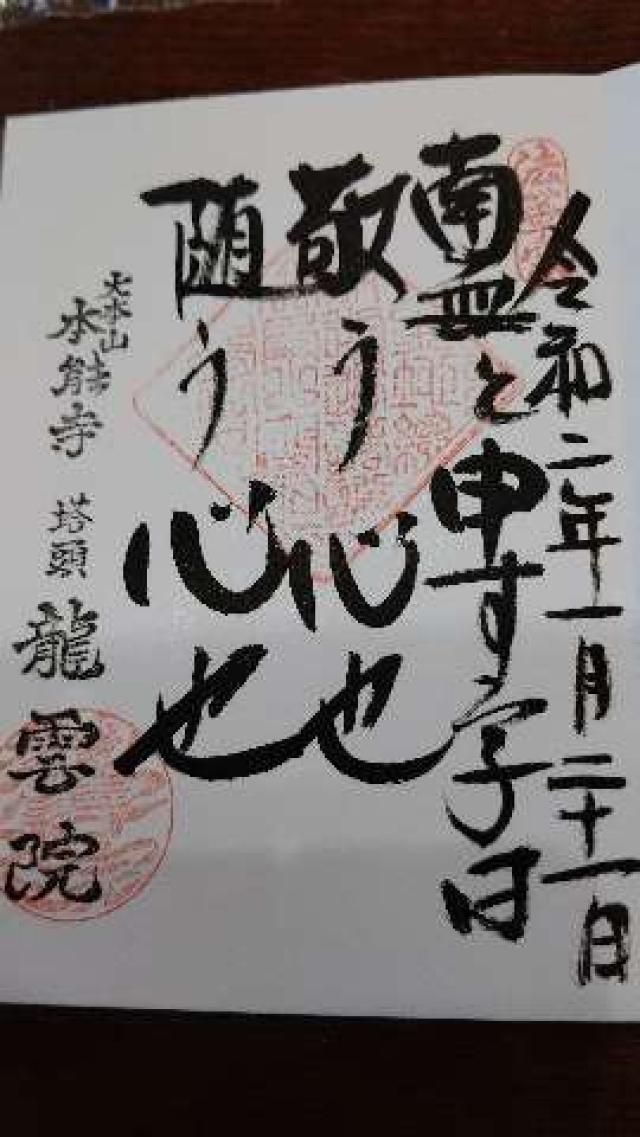 令和二年一月二十一日
南無と申す字は
敬う心也
随う心也
大本山
本能寺 塔頭 龍雲院